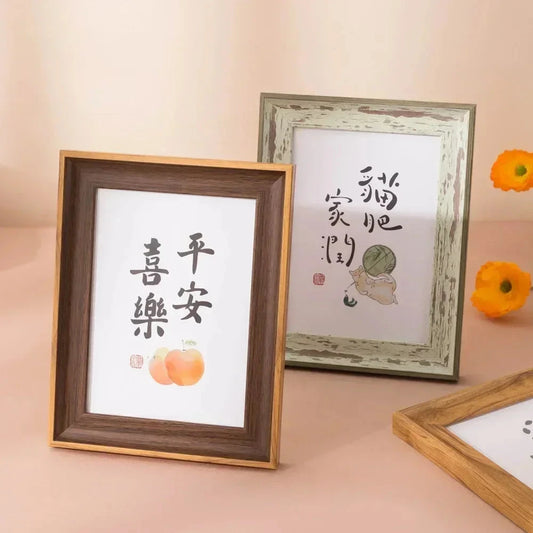 平安
喜樂
貓肥
家潤